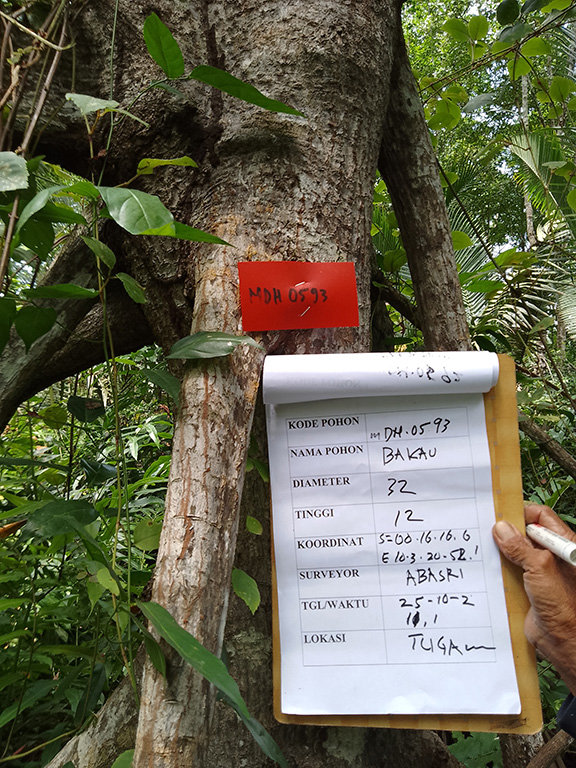 MDH 0593
KODE POHON MDH.0593
NAMA POHON BAKAU
DIAMETER 32
TINGGI 12
KOORDINAT S=00.16.16.6
E 10.3.20-58.1
SURVEYOR ABASRI
TGL/WAKTU 25-10-2
LOKASI